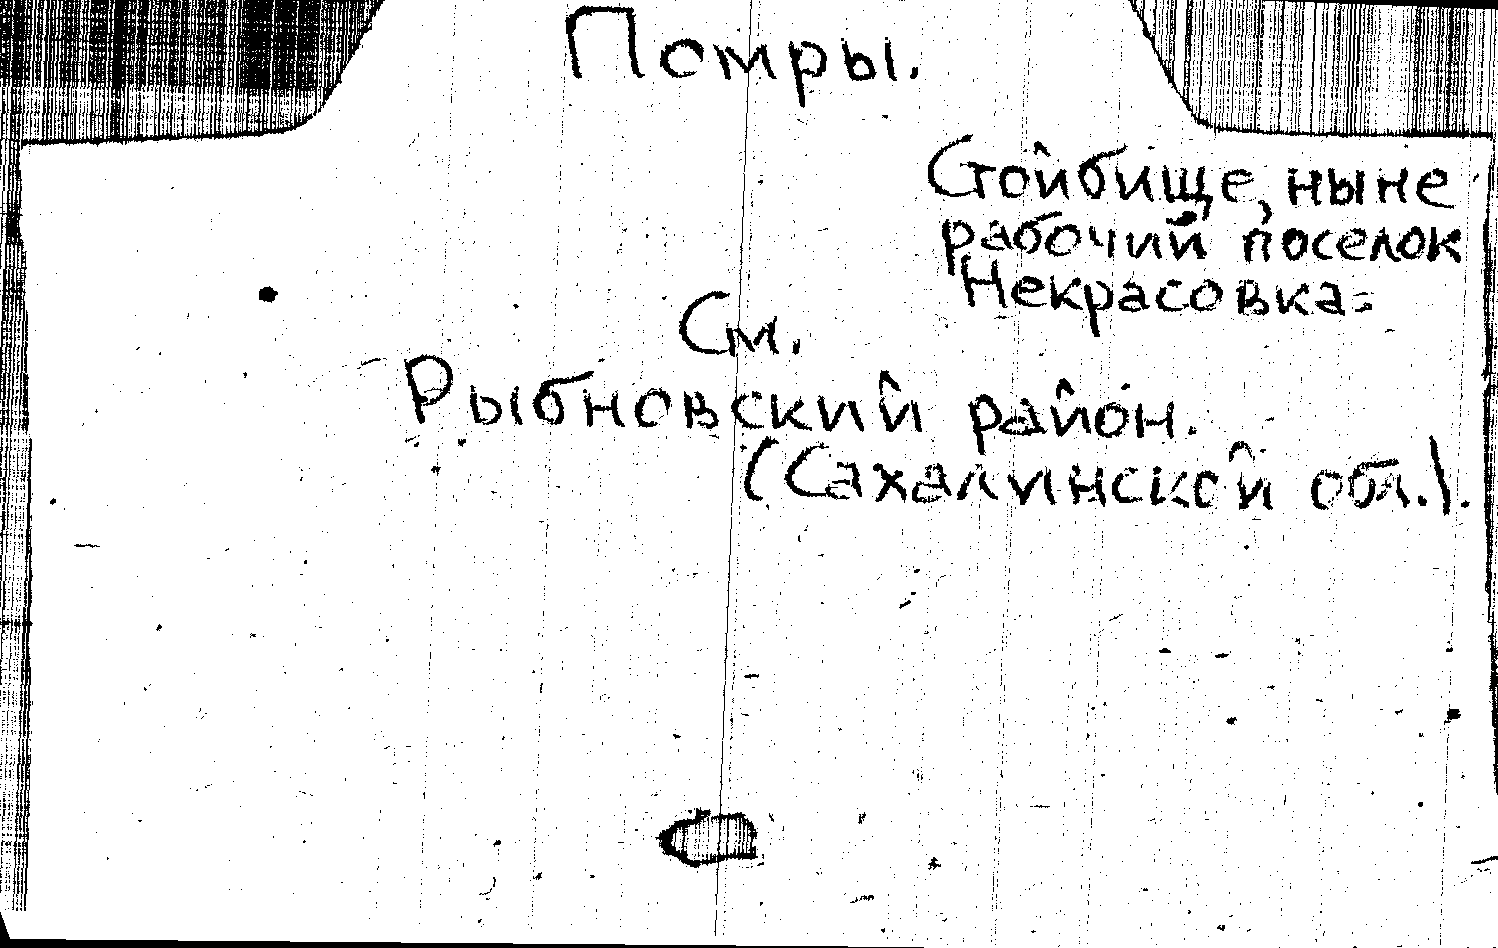 Помры.
Стойбище, ныне
рабочий поселок
Некрасовка.
См.
Рыбновский район.
(Сахалинской обл.).